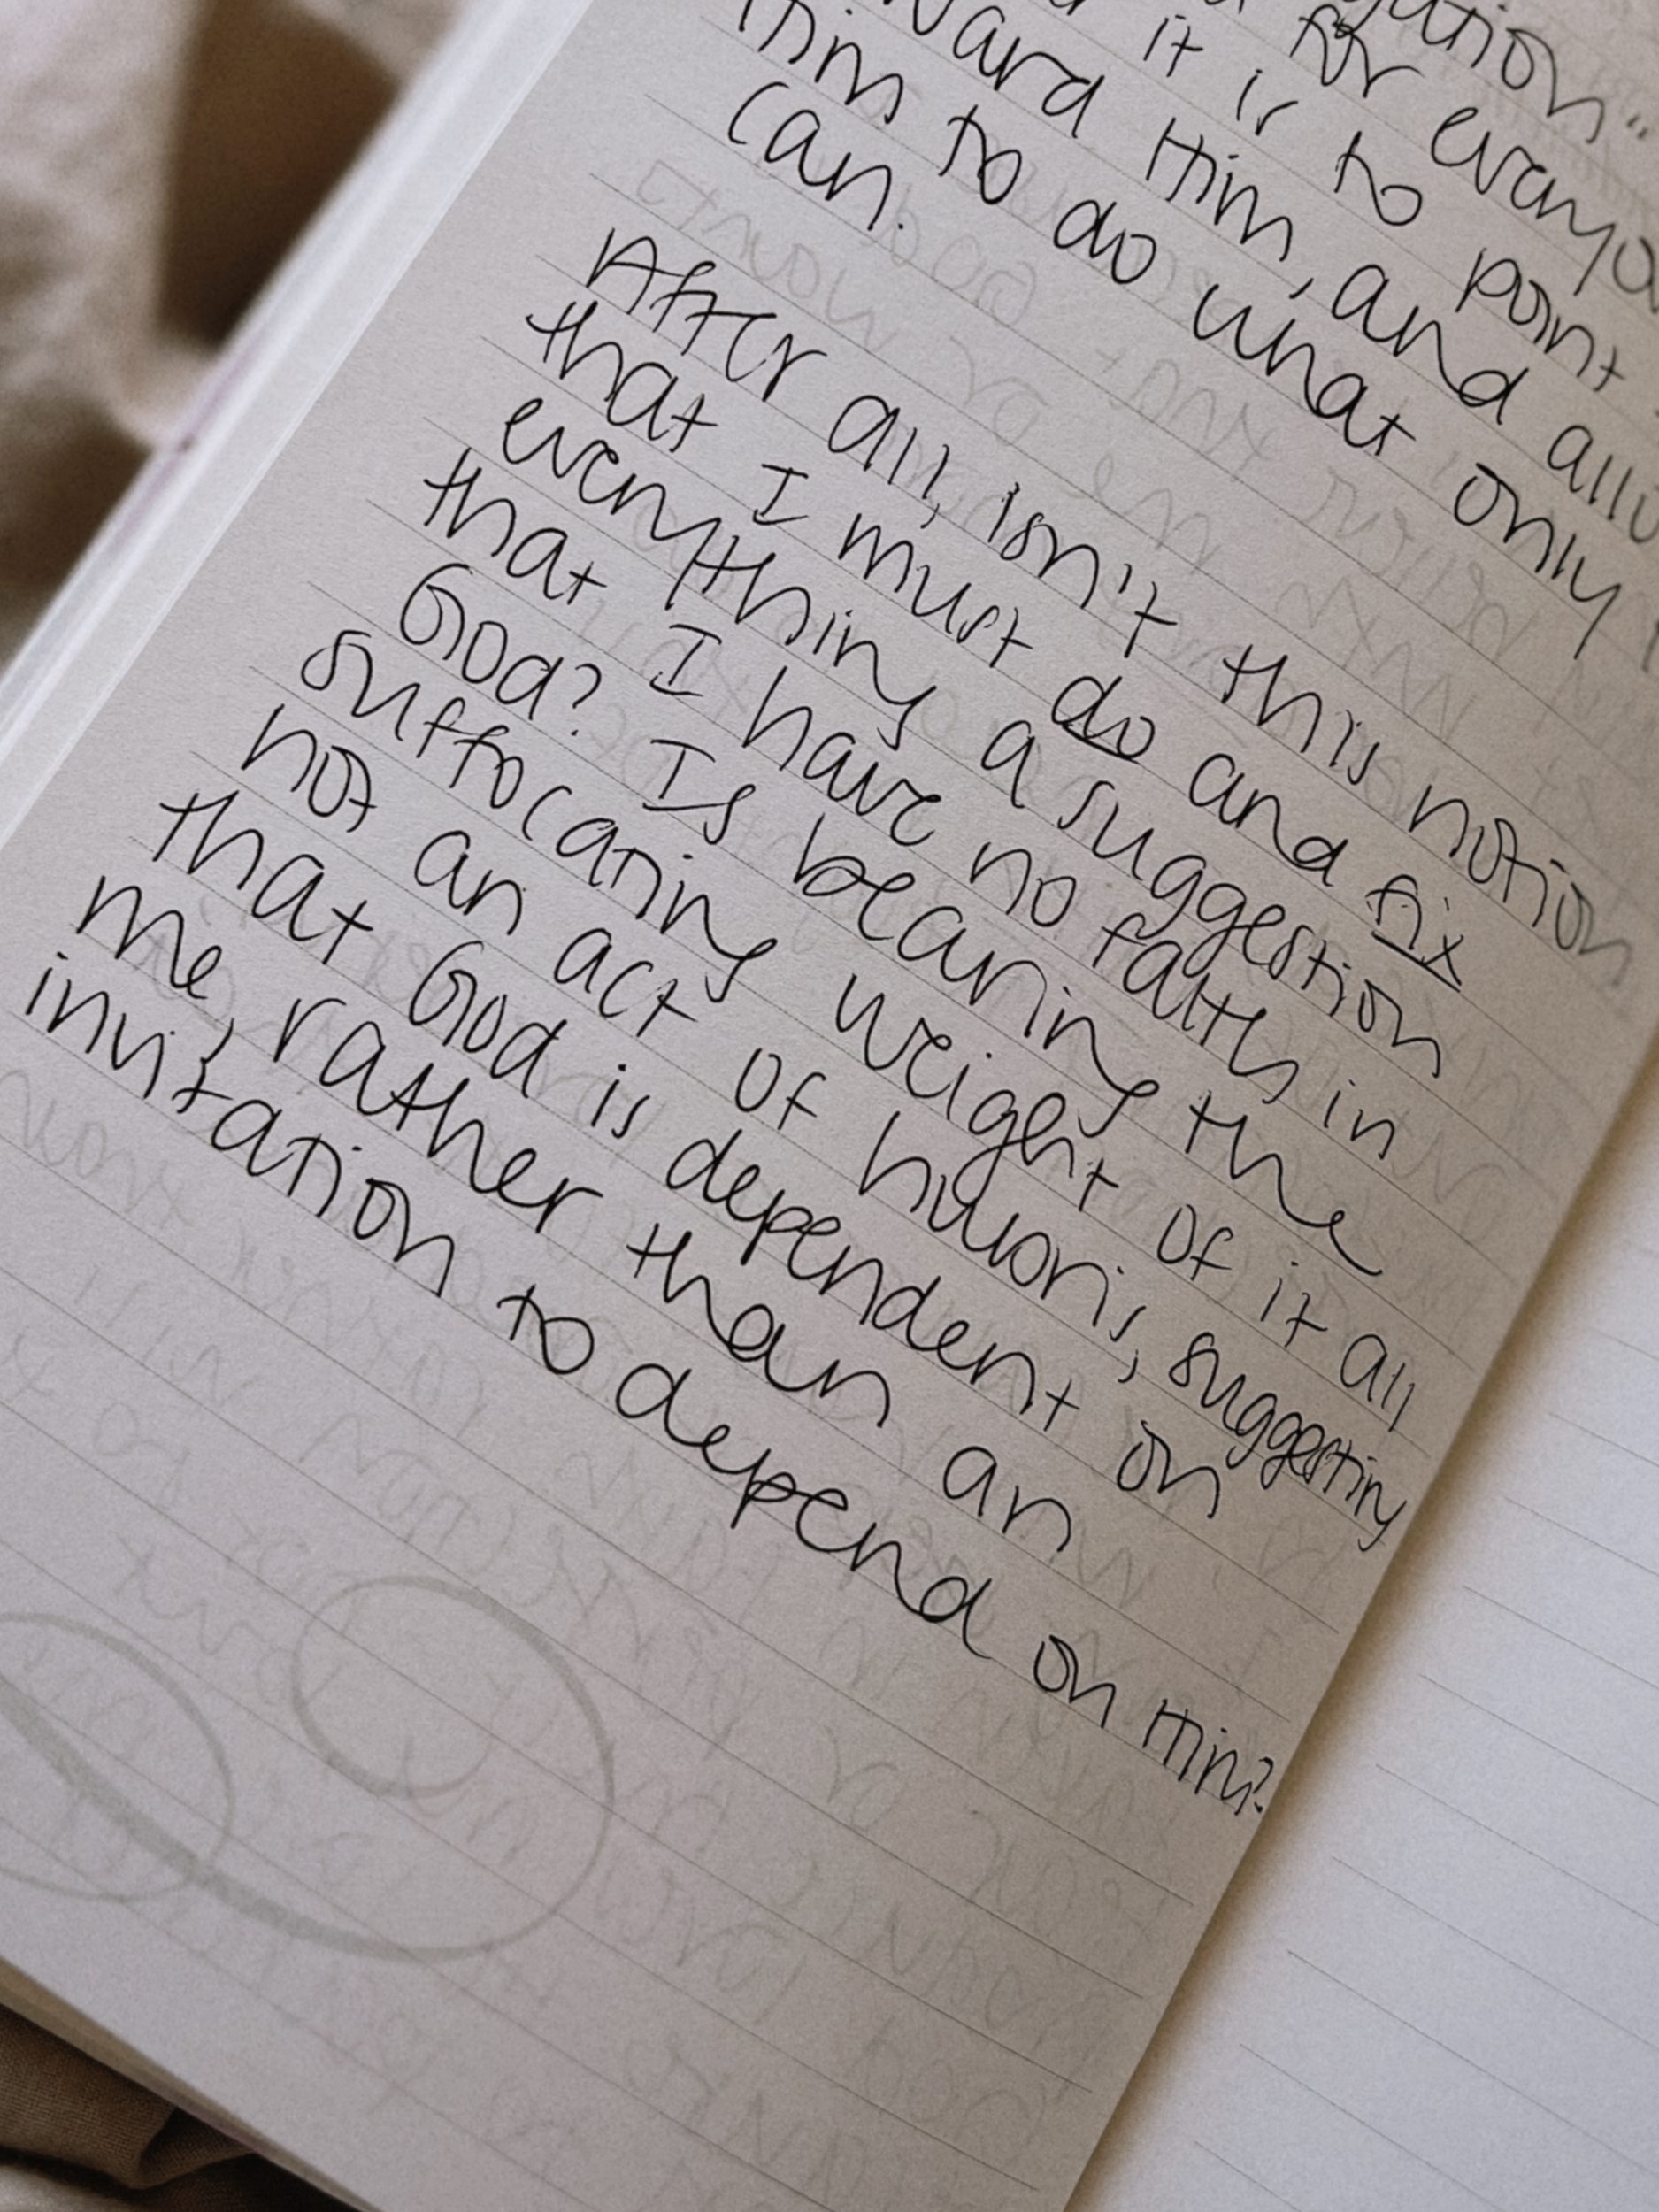 for everyo
it is to point
ward Him, and allo
Him to do what only
can.
After all, isn't this notion
that I must do and fix
everything a suggestion
that I have no faith in
God? Is bearing the
suffocating weight of it all
not an act of hubris, suggesting
that God is dependent on
me, rather than an
invitation to depend on Him?